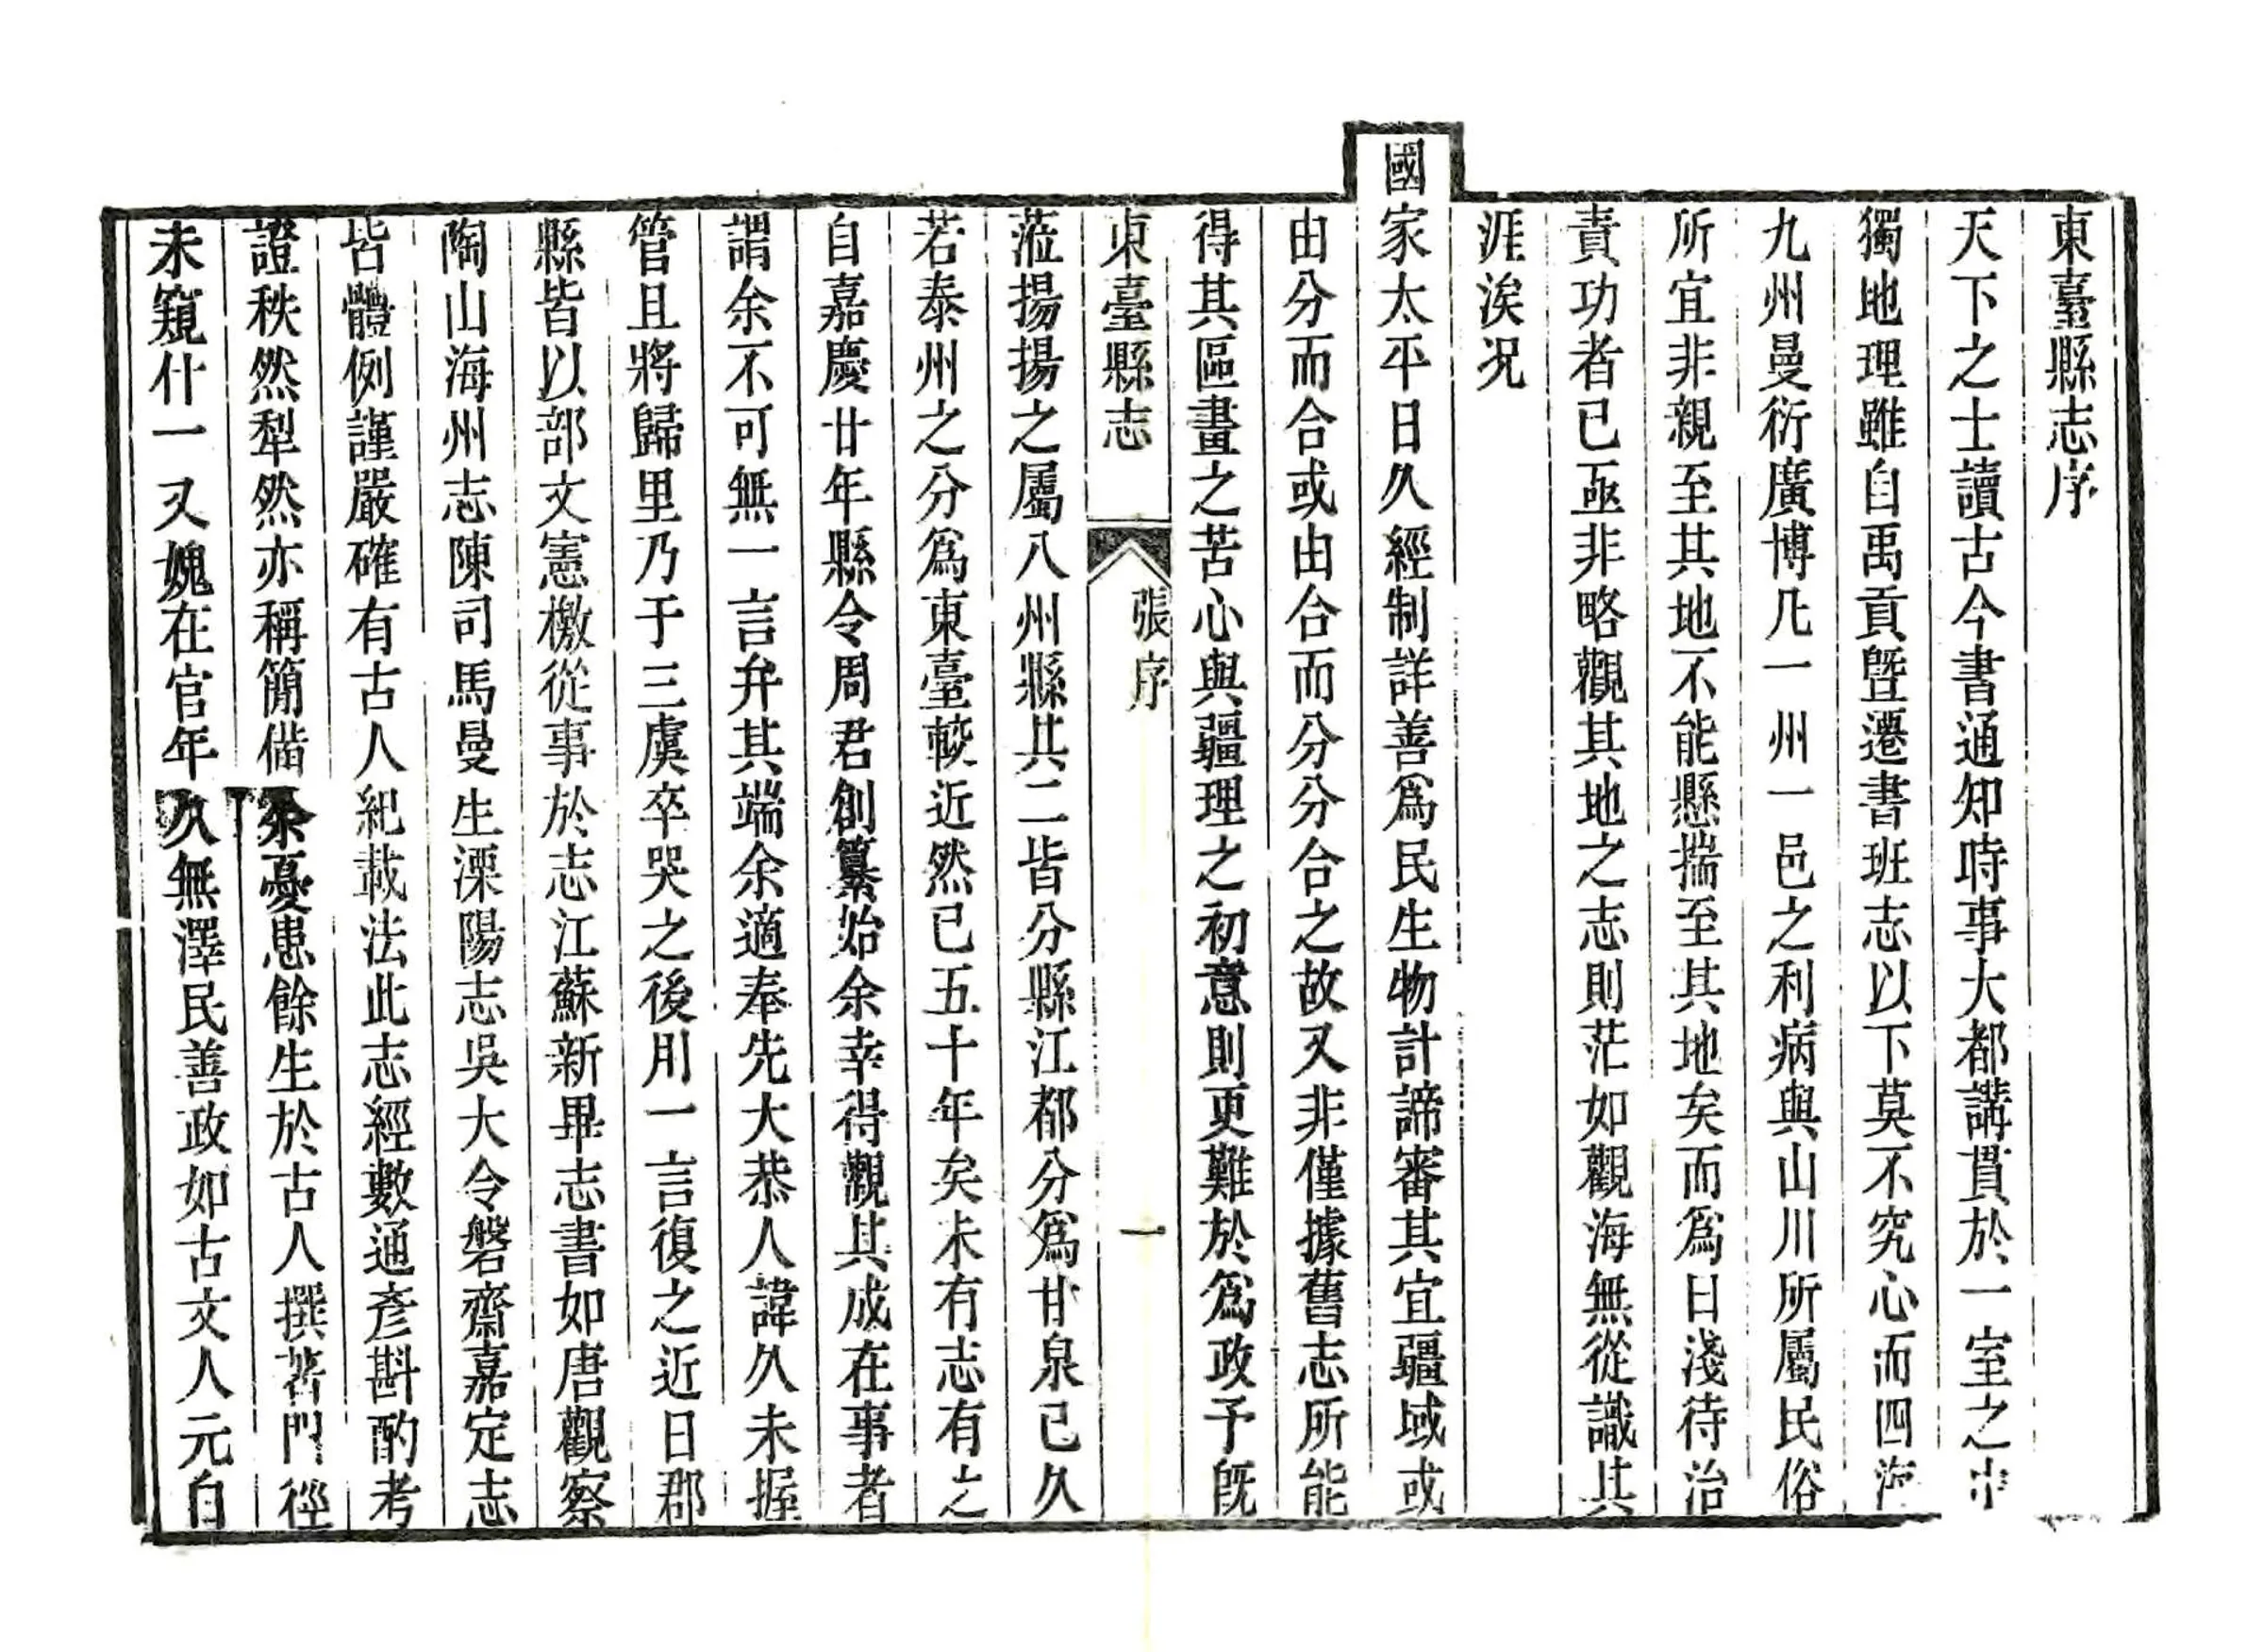 東臺縣志序
天下之士讀古今書通知時事大都講貫於一室之中
獨地理雖自禹貢曁遷書班志以下莫不究心而四海
九州曼衍廣博凡一州一邑之利病與山川所屬民俗
所宜非親至其地不能懸揣至其地矣而爲日淺待治
責功者已亟非略觀其地之志則茫如觀海無從識其
涯涘况
國家太平日久經制詳善爲民生物計諦審其宜疆域或
由分而合或由合而分分合之故又非僅據舊志所能
得其區畫之苦心與疆理之初意則更難於爲政予旣
東臺縣志
張序
一
蒞揚揚之屬八州縣其二皆分縣江都分爲甘泉已久
若泰州之分爲東臺較近然已五十年矣未有志有之
自嘉慶廿年縣令周君創纂始余幸得觀其成在事者
謂余不可無一言弁其端余適奉先大恭人諱久未握
管且將歸里乃于三虞卒哭之後用一言復之近日郡
縣皆以部文憲檄從事於志江蘇新畢志書如唐觀察
陶山海州志陳司馬曼生溧陽志吳大令磐齋嘉定志
皆體例謹嚴確有古人紀載法此志經數通彥斟酌考
證秩然犁然亦稱簡偹余憂患餘生於古人撰著門徑
未窺什一又媿在官年久無澤民善政如古文人元白